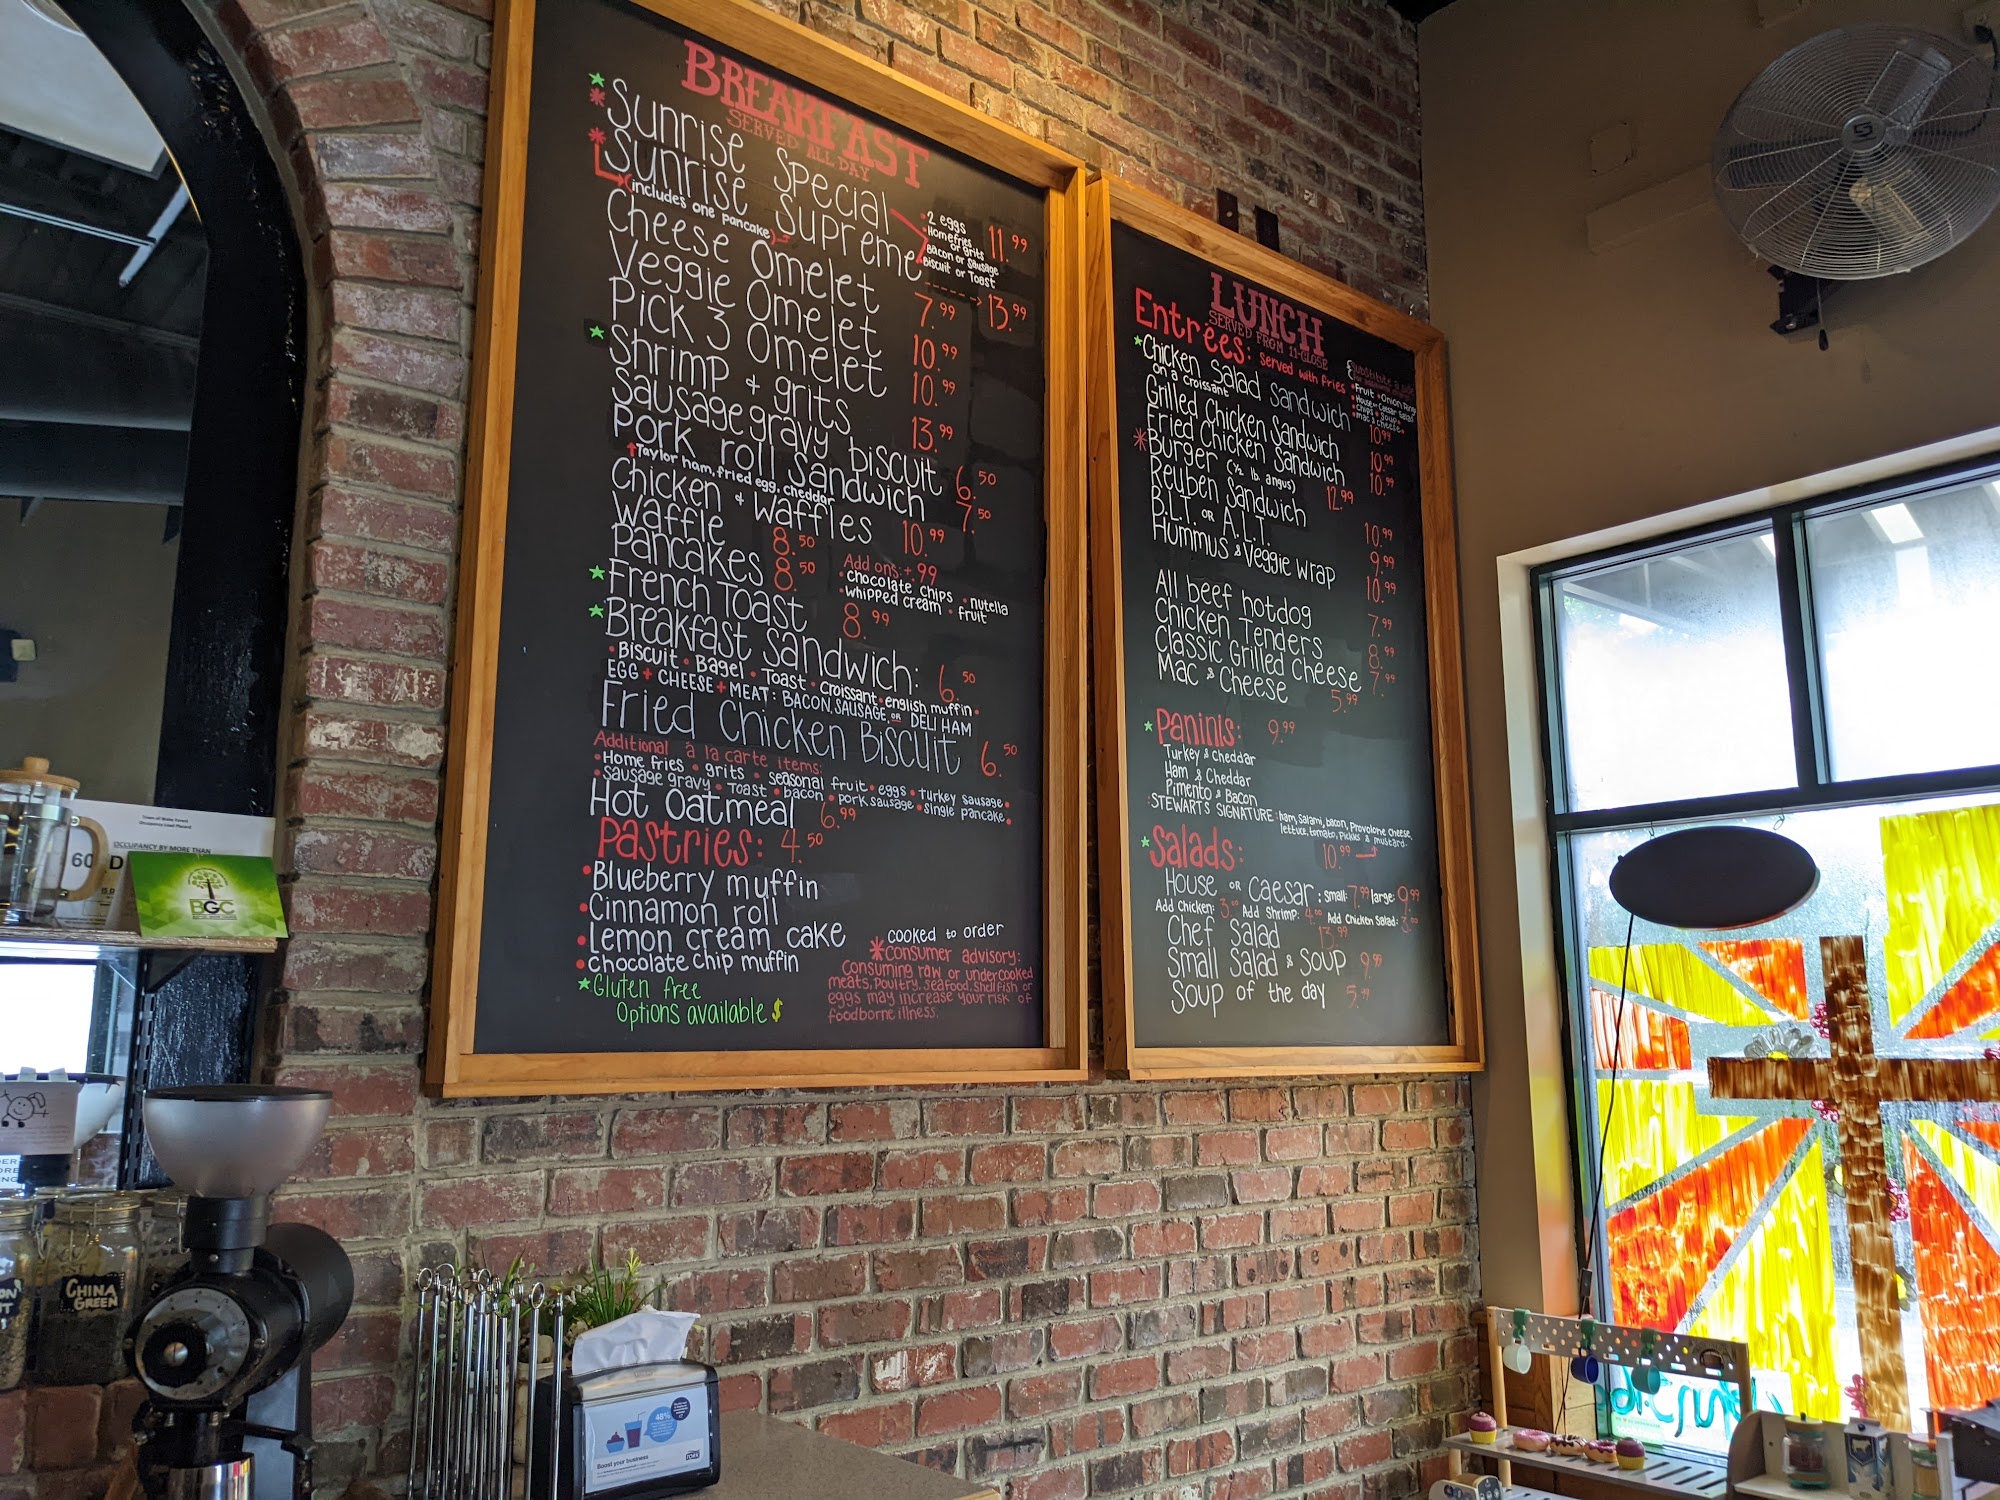 BREAKFAST
SERVED ALL DAY
Sunrise Special
Sunrise Supreme
(includes one pancake)
• 2 eggs
• Homefries
or grits
Bacon or Sausage
Biscuit or Toast
11.99
13.99
Cheese Omelet 7.99
Veggie Omelet 10.99
Pick 3 Omelet 10.99
Shrimp & grits 13.99
Sausage gravy biscuit 6.50
Pork roll Sandwich 7.50
Taylor ham, fried egg, cheddar
Chicken & Waffles 10.99
Waffle 8.50
Pancakes 8.50
Add ons: + .99
• chocolate chips • nutella
• whipped cream • fruit
French Toast 8.99
Breakfast Sandwich: 6.50
• Biscuit • Bagel • Toast • Croissant • english muffin •
EGG + CHEESE + MEAT: BACON, SAUSAGE, OR DELI HAM
Fried Chicken Biscuit 6.50
Additional à la carte items:
• Home fries • grits • seasonal fruit • eggs • turkey sausage •
• sausage gravy • toast • bacon • pork sausage • single pancake •
Hot Oatmeal 6.99
Pastries: 4.50
• Blueberry muffin
• Cinnamon roll
• Lemon cream cake
• chocolate chip muffin
* Gluten free
Options available $
COOKED to order
* Consumer advisory:
Consuming raw or undercooked
meats, poultry, seafood, shellfish or
eggs may increase your risk of
foodborne illness.
LUNCH
SERVED FROM 11-CLOSE
Entrées: served with fries
Substitute a side
• Fruit • Onion Ring
• House or Caesar Salad
• Chips • Soup •
• mac & cheese •
Chicken Salad Sandwich 10.99
on a croissant
Grilled Chicken Sandwich 10.99
Fried Chicken Sandwich 10.99
Burger (½ lb. angus) 12.99
Reuben Sandwich 10.99
B.L.T. OR A.L.T. 9.99
Hummus & Veggie wrap 10.99
All beef hotdog 7.99
Chicken Tenders 8.99
Classic Grilled Cheese 7.99
Mac & Cheese 5.99
Paninis: 9.99
Turkey & Cheddar
Ham & Cheddar
Pimento & Bacon
STEWART'S SIGNATURE: ham, salami, bacon, Provolone cheese,
lettuce, tomato, pickles & mustard.
10.99
Salads:
House OR Caesar: small: 7.99 large: 9.99
Add chicken: 3.00 Add shrimp: 4.00 Add Chicken Salad: 3.00
Chef Salad 13.99
Small Salad & Soup 9.99
Soup of the day 5.99
Town of Wake Forest
OCCUPANCY BY MORE THAN
60
BGC
CHINA
GREEN
48%
Boost your business
TORK